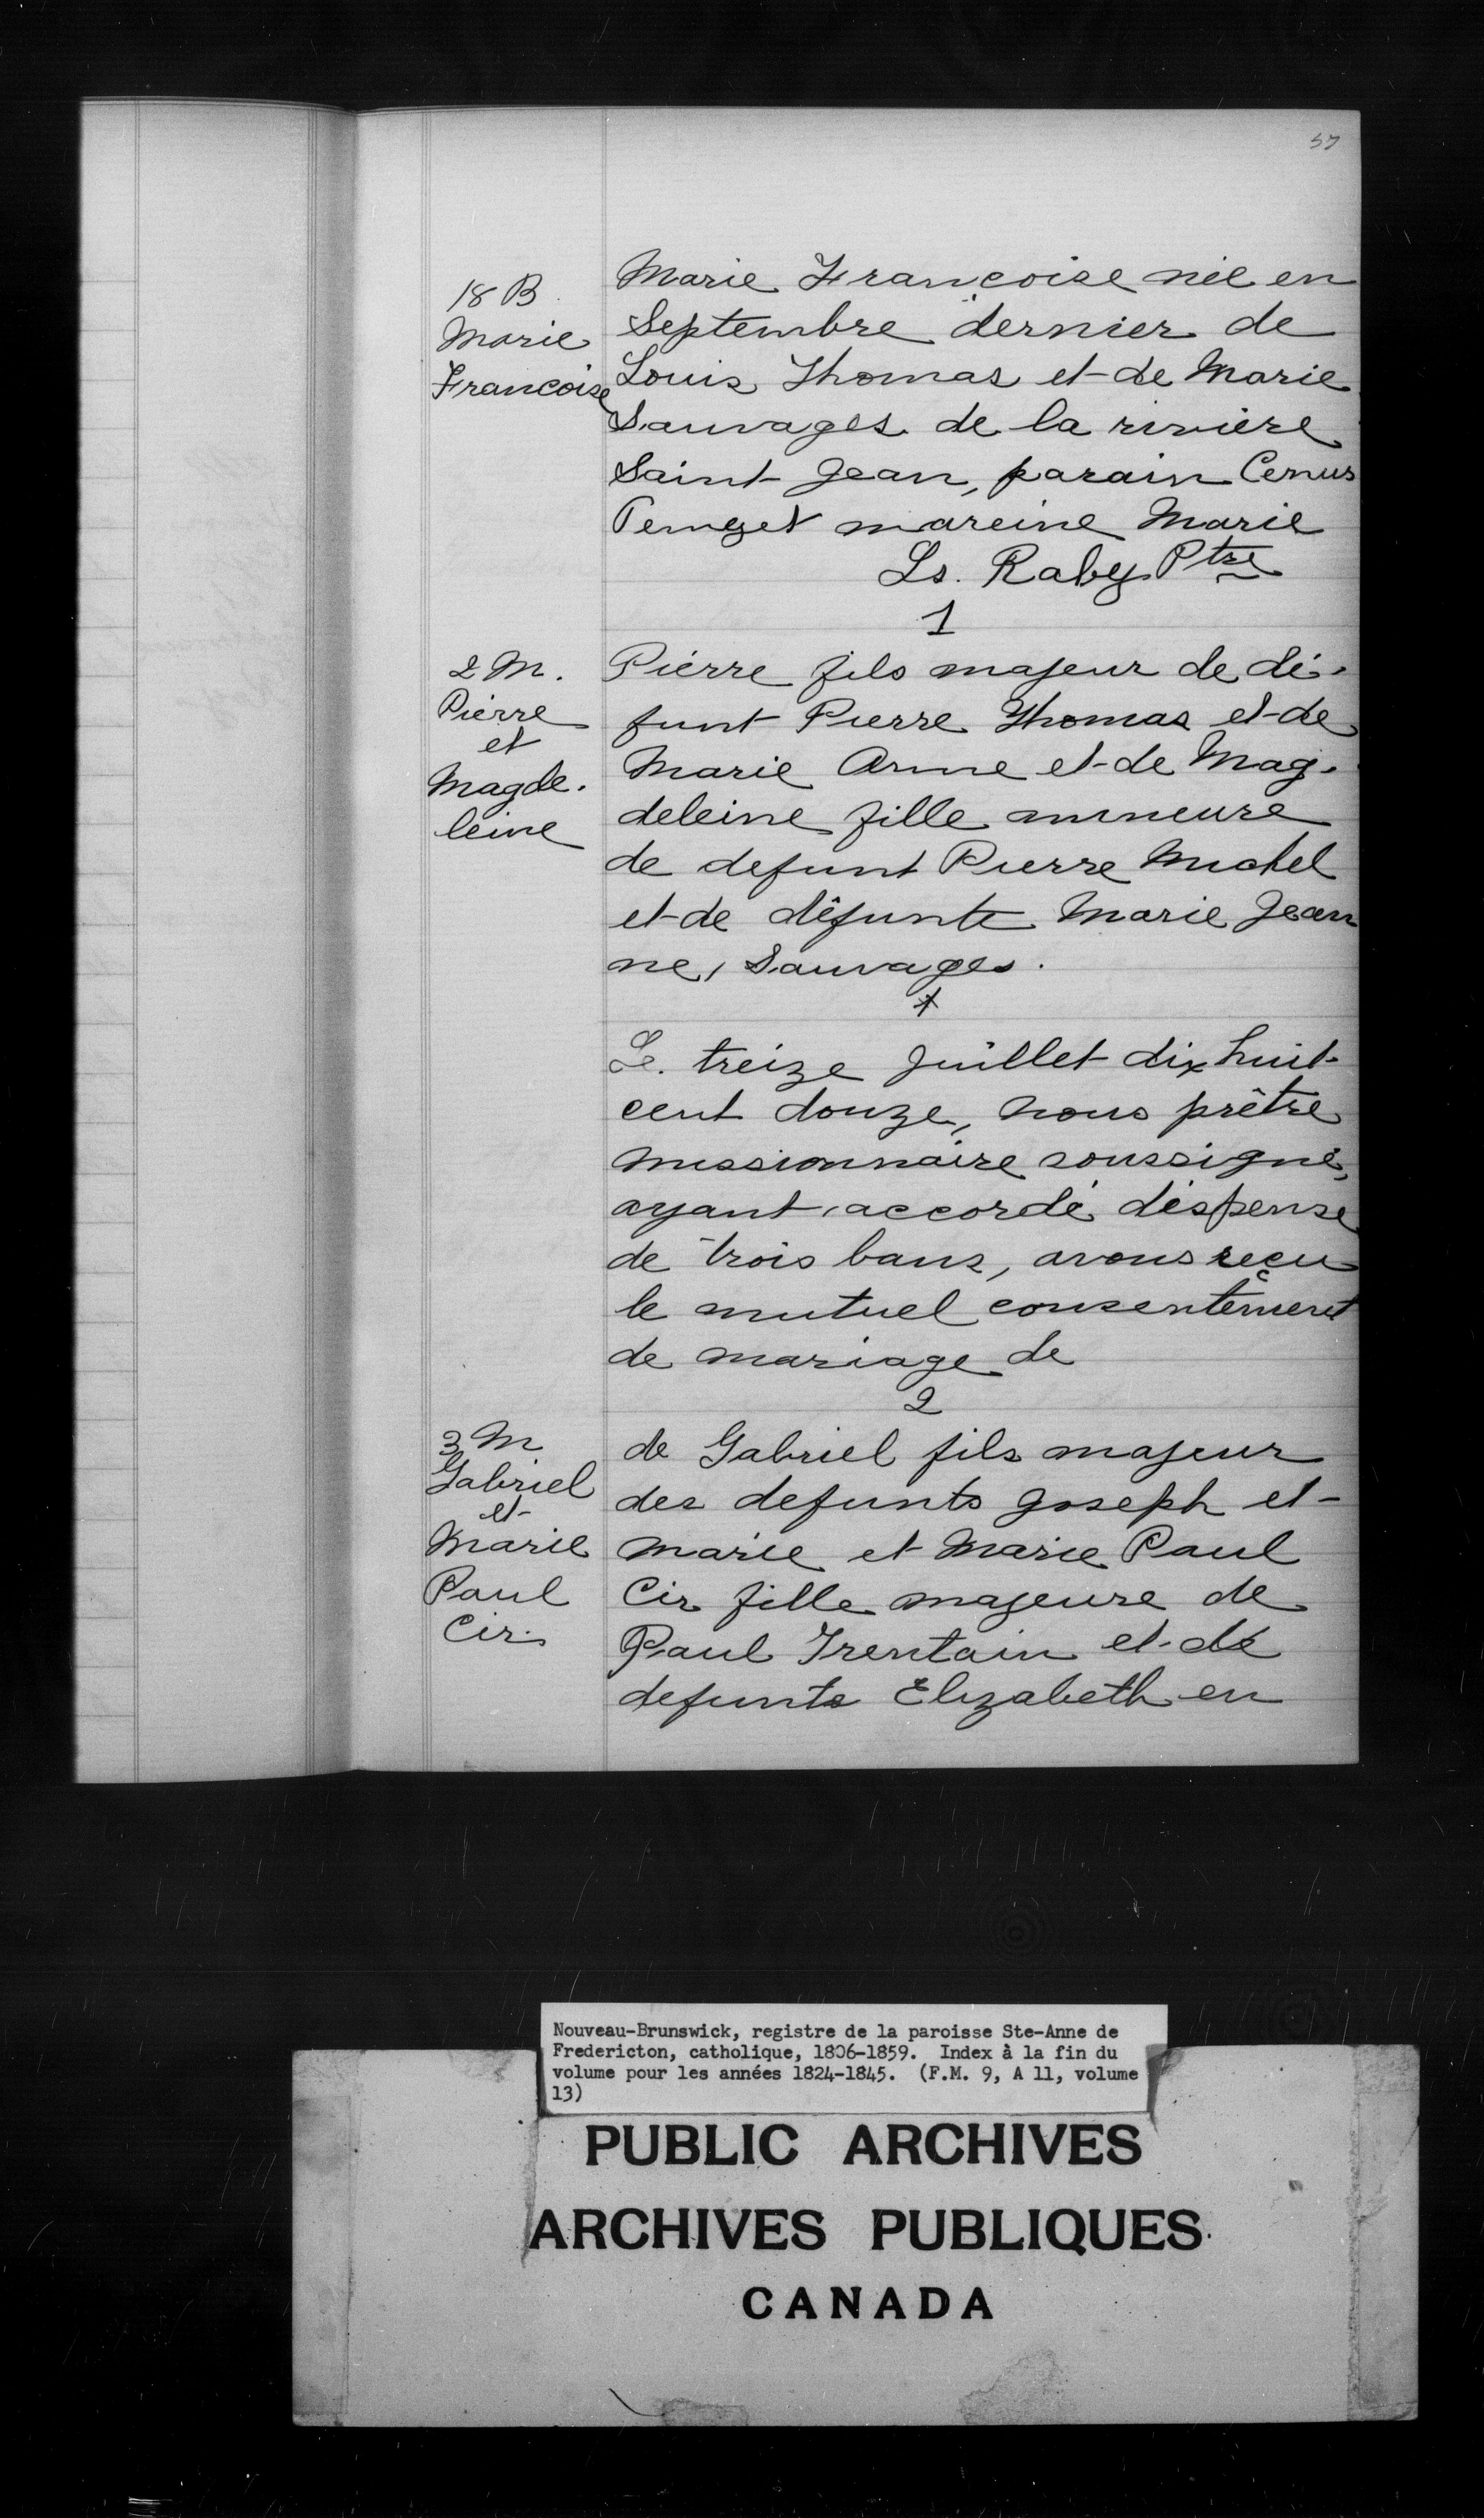 57
18 B
Marie
Francoise
Marie Françoise née en
Septembre dernier de
Louis Thomas et de Marie
Sauvages de la rivière
Saint Jean, parain
mareine Marie
Ls. Raby Ptre
1
2 M.
Pierre
et
Magde-
leine
Pierre fils majeur de dé-
funt Pierre Thomas et de
Marie Anne et de Mag-
deleine fille mineure
de defunt Pierre Michel
et de défunte Marie Jean
ne, Sauvages.
*
Le treize Juillet dix huit
cent douze, nous prêtre
missionnaire soussigné,
ayant accordé dispense
de trois bans, avons reçu
le mutuel consentement
de mariage de
2
3 M
Gabriel
et
Marie
Paul
Cir.
de Gabriel fils majeur
des defunts Joseph et
Marie et Marie Paul
Cir fille majeure de
Paul Trentain et de
defunte Elizabeth en
Nouveau-Brunswick, registre de la paroisse Ste-Anne de
Fredericton, catholique, 1806-1859. Index à la fin du
volume pour les années 1824-1845. (F.M. 9, A 11, volume
13)
PUBLIC ARCHIVES
ARCHIVES PUBLIQUES
CANADA